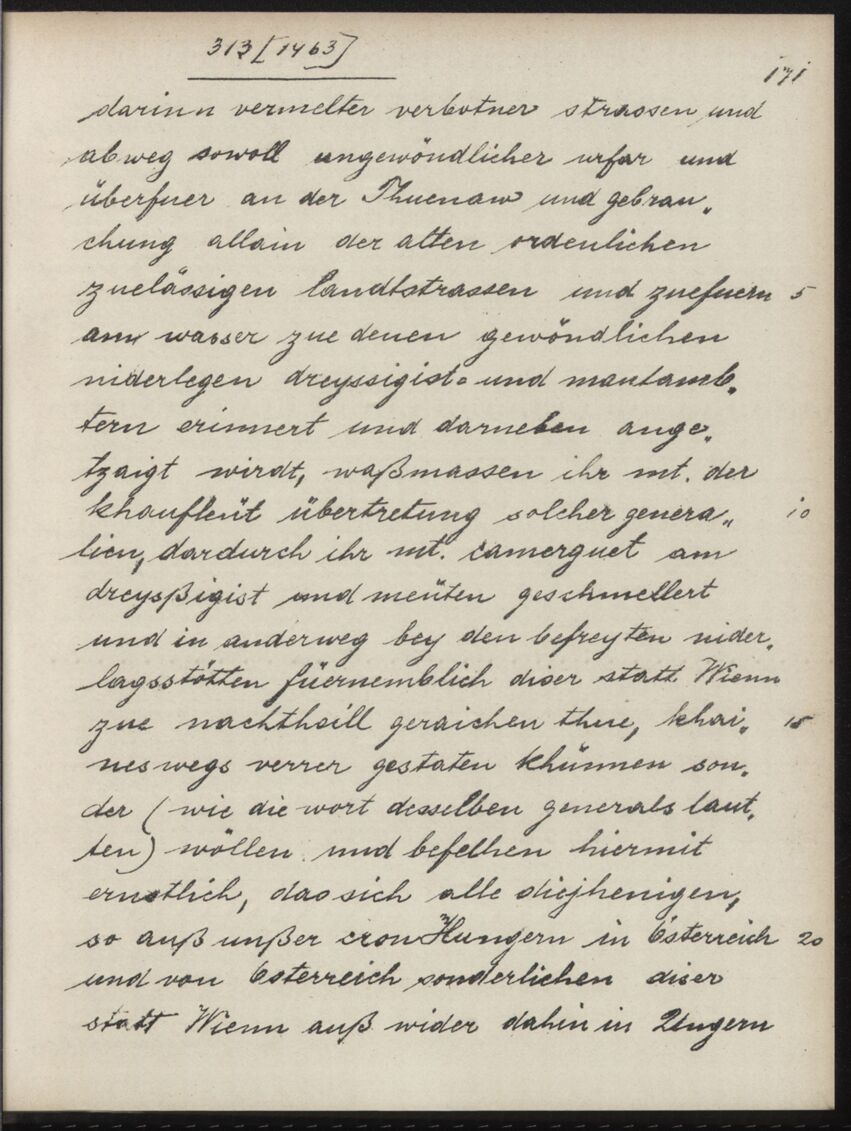 313 [1463]
171
darinn vermelter verbotner strassen und
abweg sowoll ungewöndlicher urfar und
überfuer an der Thuenaw und gebrau„
chung allain der alten ordenlichen
zuelässigen landtstrassen und zuefuern 5
am wasser zue denen gewöndlichen
niderlegen dreyssigist= und mautamb„
tern erinnert und darneben ange„
tzaigt wirdt, waßmassen ihr mt. der
khaufleüt übertretung solcher genera„ 10
lien, dardurch ihr mt. camerguet am
dreysßigist und meüten geschmellert
und in anderweg bey den befreyten nider„
lagsstötten füernemblich diser statt Wienn
zue nachthaill geraichen thue, khai„ 15
neswegs verrer gestaten khünnen son„
der (wie die wort desselben generals laut„
ten) wöllen und befelhen hiermit
ernstlich, das sich alle diejhenigen,
so auß unßer cron Hungern in Österreich 20
und von Österreich sonderlichen diser
statt Wienn auß wider dahin in Ungern